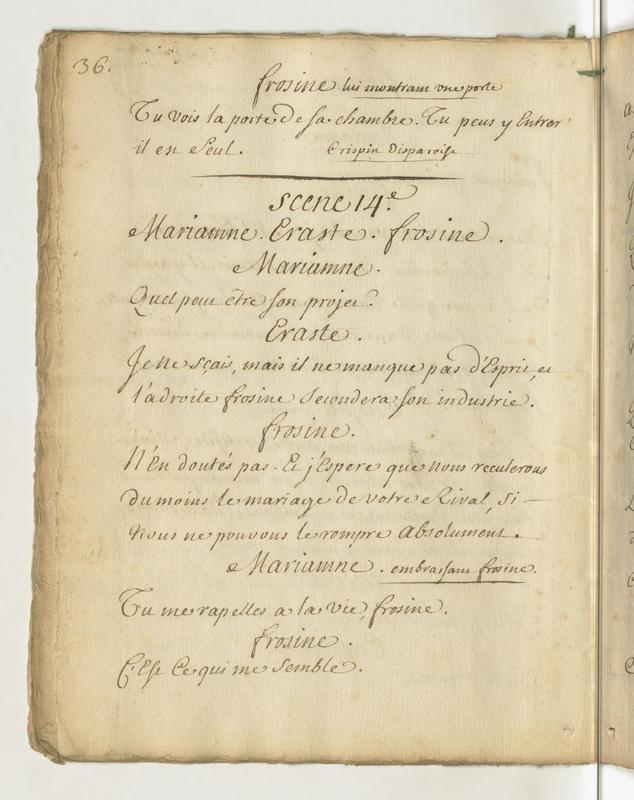 36.
frosine lui montrant une porte
Tu vois la porte de sa chambre. Tu peus y Entrer
il est seul. Crispin disparoist
scene 14.e
Mariamne. Eraste. frosine.
Mariamne.
Quel peut être son projet?
Eraste.
Je ne sçais, mais il ne manque pas d'Esprit, et
l'adroite frosine secondera son industrie.
frosine.
N'En doutés pas. Et j'Espere que nous reculerons
du moins le mariage de votre Rival, si
nous ne pouvons le rompre absolument.
Mariamne. embrassant frosine.
Tu me rapelles a la vie, frosine.
frosine.
C'Est Ce qui me semble.